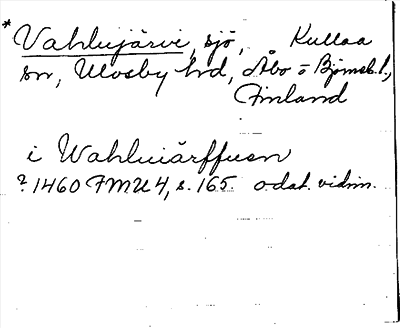 * Vahlujärvi, sjö, Kullaa
sn, Ulvsby hrd, Åbo o Björneb. l.,
Finland
i Wahluiärffuen
? 1460 FMU 4, s. 165. odat. vidim.